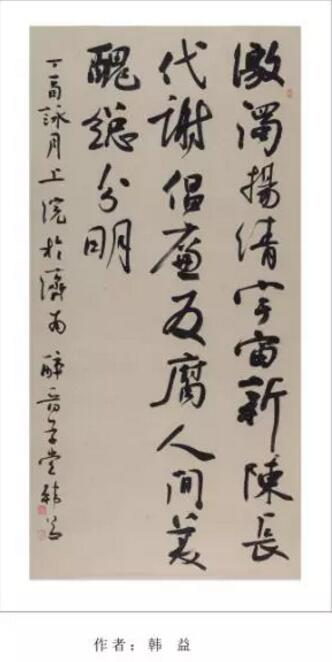 激濁揚清宇宙新陳長
代謝倡廉反腐人間美
醜總分明
丁酉詠月上浣於濟南醉音草堂韩益
作者：韩 益